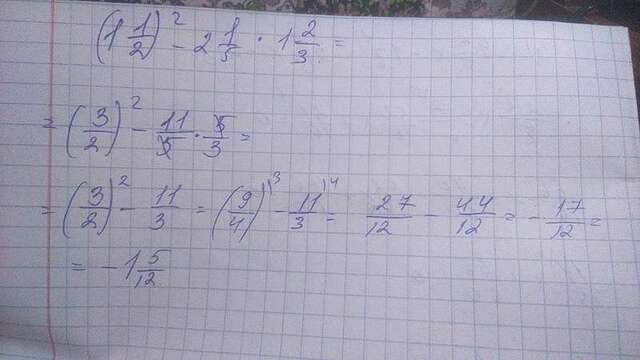 (1 1/2)² - 2 1/5 · 1 2/3 =
= (3/2)² - 11/5 · 5/3 =
= (3/2)² - 11/3 = (9/4)^\3 - 11/3^\4 = 27/12 - 44/12 = - 17/12 =
= - 1 5/12